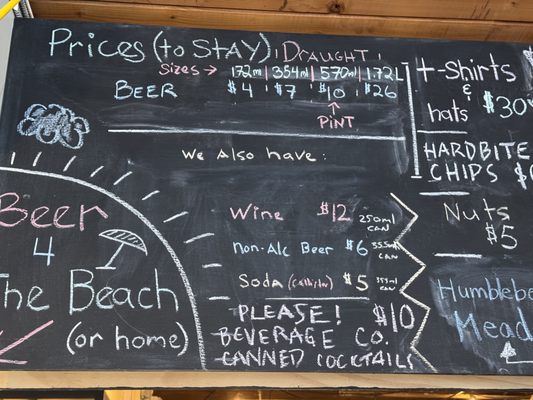 Prices (to STAY) DRAUGHT
Sizes → 172ml 354ml 570ml 1.72L
BEER $4 $7 $10 $26
PINT
We Also have:
Wine $12 250ml CAN
Non-Alc Beer $6 355ml CAN
Soda $5 355ml CAN
PLEASE! $10
BEVERAGE CO.
CANNED COCKTAILS
Beer
4
The Beach
(or home)
T-Shirts
&
hats $30
HARDBITE
CHIPS
Nuts
$5
Humblebe
Mead